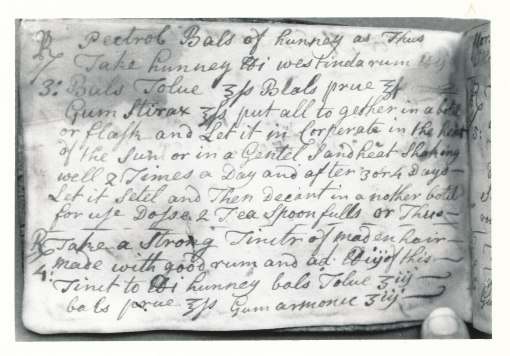 ℞ Pectrol Bals of hunney as Thus
7 Take hunney ℔i westindarum
3: Bals Tolue ℥ſs Blals prue ℥ſs
Gum Stirax ℥ſs put all to gether in a botel
or flask and Let it in Corperate in the heat
of the Sun or in a Gentel Sandheat Shaking
well 2 Times a Day and after 3 or 4 Days
Let it Setel and Then decant in a nother botel
for uſe Doſse 2 Tea Spoonfulls or Thus
℞ Take a Strong Tinctr of maden hair
made with good rum and ad ℔ij of this
4: Tinct to ℔i hunney bals Tolue ℥iij
bals prue ℥ſs Gum armonic ℥iij